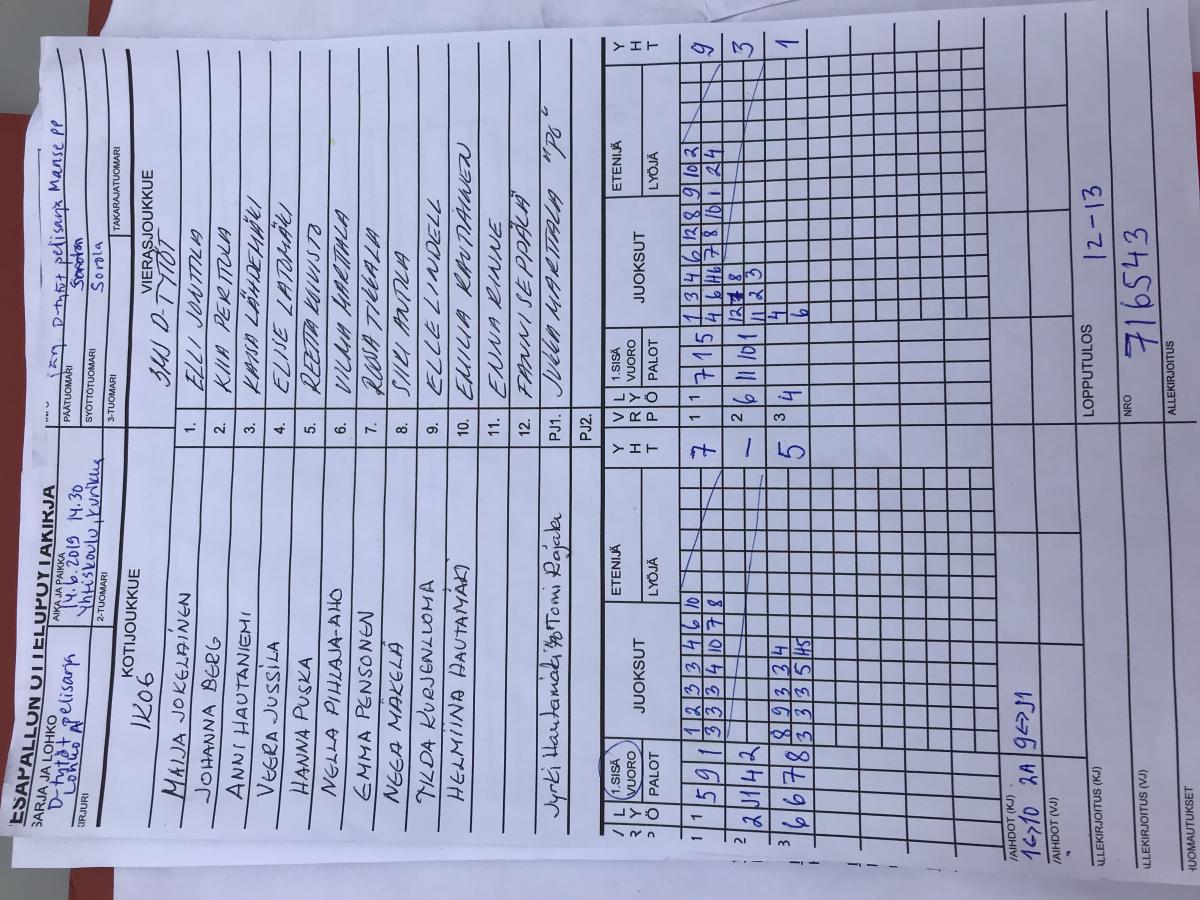 PESÄPALLON OTTELUPÖYTÄKIRJA
SARJA JA LOHKO
D-tytöt pelisarja
Lohko A
AIKA JA PAIKKA
14.6.2019 14.30
Yhtiskoulu, Kurikka
D-tytöt pelisarja Manse PP
PÄÄTUOMARI
SYÖTTÖTUOMARI
Sorola
KIRJURI
2-TUOMARI
3-TUOMARI
TAKARAJATUOMARI
KOTIJOUKKUE
IK06
VIERASJOUKKUE
D-TYTÖT
MAIJA JOKELAINEN
1. ELLI JUNTTILA
JOHANNA BERG
2. KIIA PERTTULA
ANNI HAUTANIEMI
3. KAISA LÄHDEMÄKI
VEERA JUSSILA
4. ELISE LATOMÄKI
HANNA PUSKA
5. REETTA KOIVISTO
NELLA PIHLAJA-AHO
6. VILMA MARTTALA
EMMA PENSONEN
7. ROOSA TIKKALA
NEEA MÄKELÄ
8. SIIRI ANTILA
TILDA KURJENLUOMA
9. ELLE LINDELL
HELMIINA HAUTAMÄKI
10. EMILIA RANTAINEN
11. ENNA RINNE
12. FANNI SEPPÄLÄ
Jyrki Hautamäki Tomi Rajala
PJ1. JUKKA MARTTALA "PO"
PJ2.
V R P
L Y Ö
1.SISÄ VUORO
PALOT
JUOKSUT
ETENIJÄ
LYÖJÄ
Y H T
V R P
L Y Ö
1.SISÄ VUORO
PALOT
JUOKSUT
ETENIJÄ
LYÖJÄ
Y H T
1 1 5 9 1
1 2 3 3 4 6 10
3 3 3 4 10 7 8
7
1 1 7 1 5
1 3 4 6 12 8 9 10 2
4 6 H6 7 8 10 1 2 4
9
2 2 J1 4 2
–
2 6 11 10 1
12 8
11 2 3
3
3 6 6 7 8
8 9 3 3 4
3 3 3 5 H5
5
3 4
4
6
1
VAIHDOT (KJ)
1<->10 2A 9<->J1
VAIHDOT (VJ)
ALLEKIRJOITUS (KJ)
LOPPUTULOS
12-13
ALLEKIRJOITUS (VJ)
NRO
716543
HUOMAUTUKSET
ALLEKIRJOITUS